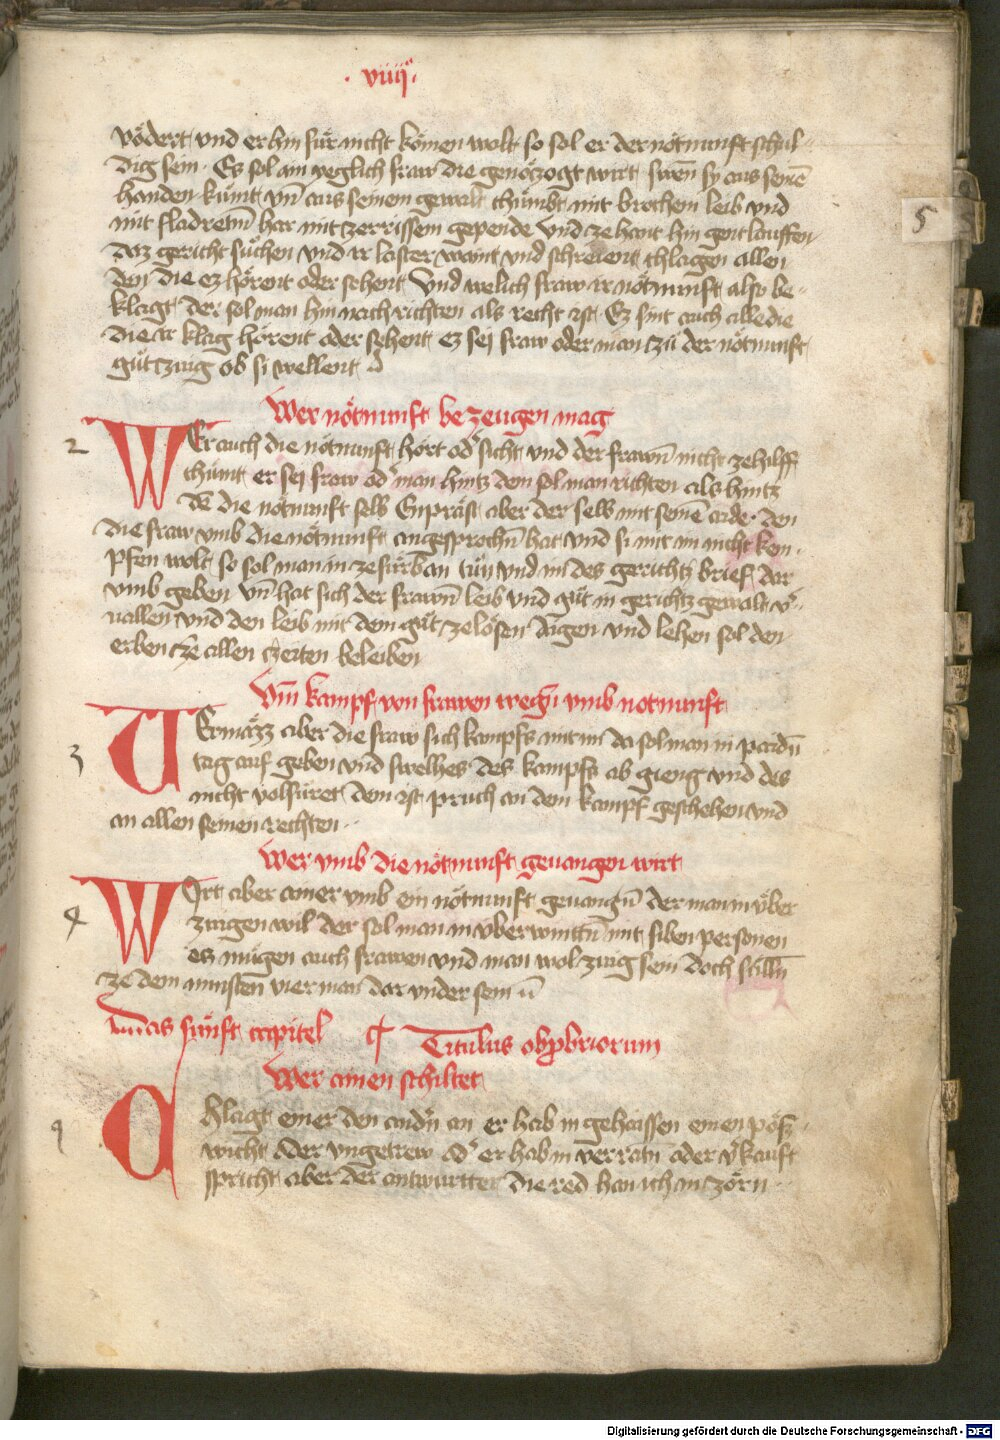 · viiij ·
5
vödert vnd er hin für nicht kömen wolt so sol er der nötnunft schul-
dig sein · Es sol ain yeglich fraw die genöczogt wirt swen̄ sy aus seinē
handen kümt vn̄ aus seinem gewalt thümbt mit brochem leib vnd
mit fladretm̄ har mit zerrissem gepende vnd ze hant hin gent lauffen
daz gericht süchen vnd ir laster waint vnd schreient chlagen allen
den die ez hörent oder sehent Vnd welich fraw ir nötnunft also be-
klagt der sol man hin nach richten als recht ist Ez sint auch alle die
die ir klag hörent oder sehent ez sej fraw oder man tzü der nötnunft
güt tzwg ob si wellent
Wer nötnunft bezeugen mag
2
WEr auch die nötnunft hört od' sicht vnd der frawn̄ nicht ze hilff
chümt er sej fraw od' man hintz dem sol man richten als hintz
dē die nötnunft selb Enpräst aber der selb mit seinē aide den
die fraw vmb die nötnunft angesprochn̄ hat vnd si mit im nicht kem-
pfen wolt so sol man in ze fürban tün vnd im des gerichtz brief dar
vmb geben vn̄ hat sich der frawn̄ leib vnd güt in gerichtz gewalt v'-
uallen vnd den leib mit dem güt ze lösen Aigen vnd lehen sol den
erben ze allen czeiten beleiben
Vm̄ kampf von frawen wegn̄ vmb notnunft
3
VErmäzz aber die fraw sich kampfs mit im da sol man in paidn̄
tag auf geben vnd swelhes des kampfs ab gieng vnd des
nicht volfüret dem ist pruch an dem kampf geschehen vnd
an allen seinen rechten ··
Wer vmb die nötnunft geuangen wirt
4
WIrt aber ainer vmb ein nötnunft geuangn̄ der man in über
zwgen wil der sol man in vberwinttn̄ mit siben personen
es mügen auch frawen vnd man wol zwg sein Doch sülln̄
ze dem minsten vier man dar vnder sein
Das fünft capitel ¶ Titulus obprobriorum
Wer ainen schiltet
1
Chlagt einer den andn̄ an er hab in gehaissen einen pösz-
wicht oder vngetrew od' er hab in verratn̄ oder v'kauft
spricht aber der antwurtter die red han ich in zörn ·
Digitalisierung gefördert durch die Deutsche Forschungsgemeinschaft - DFG